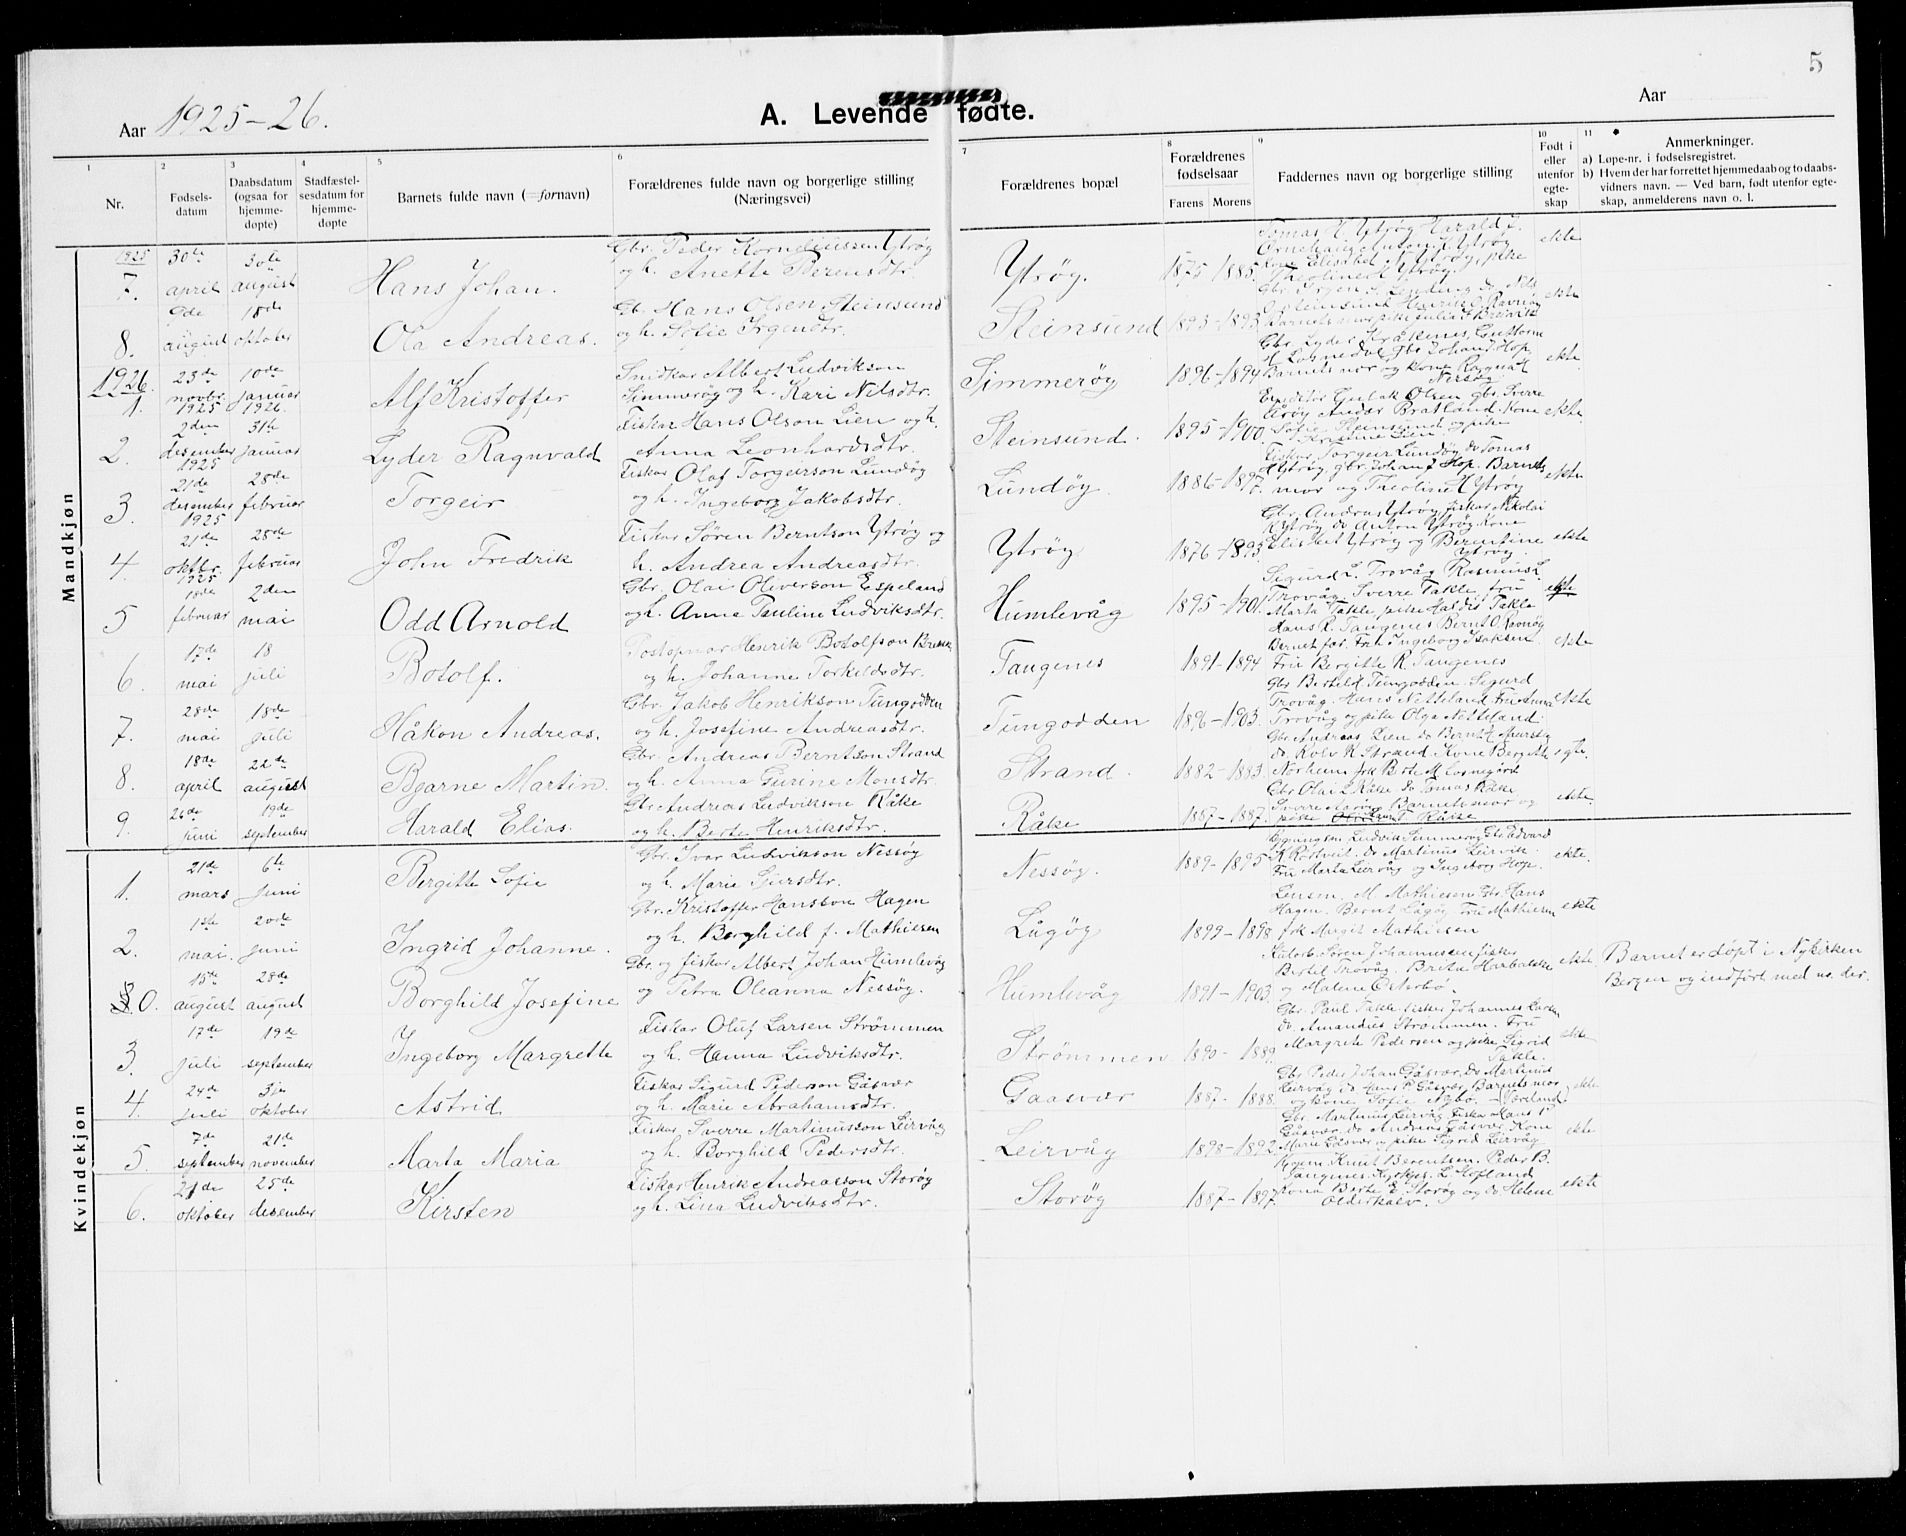 5
Aar 1925-26.
A. Levende fødte.
Aar
1 2 3 4 5 6 7 8 9 10 11
Nr.
Fødsels-
datum
Daabsdatum
(ogsaa for
hjemme-
døpte)
Stadfæstel-
sesdatum for
hjemme-
døpte
Barnets fulde navn (=fornavn)
Forældrenes fulde navn og borgerlige stilling
(Næringsvei)
Forældrenes bopæl
Forældrenes
fødselsaar
Farens Morens
Faddernes navn og borgerlige stilling
Født i
eller
utenfor
egte-
skap
Anmerkninger.
a) Løpe-nr. i fødselsregistret.
b) Hvem der har forrettet hjemmedaab og to daabs-
vidners navn. — Ved barn, født utenfor egte-
skap, anmelderens navn o. l.
Mandkjøn
1925
7. 30te april 30te august
Hans Johan.
Gbr. Peder Korneliussen Ytrøy
og h. Anette Berensdtr.
Ytrøy. 1875-1885.
Tomas H. Ytrøy Harald J.
Kone Elisabet N. Ytrøy, pike
Ytrøy.
ekte
8. 9de august 18de oktober
Ola Andreas.
Gb. Hans Olsen Steinsund
og h. Sofie Irgensdtr.
Steinsund 1893-1893
Barnets mor pike Julia Breivik
ekte
1926.
1. 23de novbr. 1925 10de januar 1926.
Alf Kristoffer
Snidkar Albert Ludvikson
Simmerøy og h. Kari Nilsdtr.
Simmerøy 1896-1894
Gbr. Lyder Kråkenes, Guttorm
H. Losnedal gbr Johan J. Hop,
Barnets mor og kone Ragna H
Nersøy
ekte
2. 2den desember 1925 31te januar
Lyder Ragnvald
Fiskar Hans Olson Lien og h.
Anna Leonhardsdtr.
Steinsund. 1895-1900.
Olsen gbr. Sverre
Årøy Anders Bratland. Kone
Sofie Steinsund og pike
Lien
ekte
3. 21de desember 1925 28de februar
Torgeir
Fiskar Olaf Torgeirson Lundøy
og h. Ingeborg Jakobsdtr.
Lundøy. 1886-1897.
Fiskar Torgeir Lundøy do Tomas
H Ytrøy, gbr. Johan J Hop. Barnets
mor og Teoline H Ytrøy
ekte
4. 21de oktbr. 1925 28de februar
John Fredrik
Fiskar Søren Berntson Ytrøy og
h. Andrea Andreasdtr.
Ytrøy 1876-1893
Gbr. Andreas Ytrøy, fiskar Nikolai
K Ytrøy do Anton Ytrøy Kone
Elisabet Ytrøy og Berentine
Ytrøy.
ekte
5 18de februar 2den mai
Odd Arnold
Gbr. Olai Oliverson Espeland
og h. Anna Pauline Ludviksdtr.
Humlevåg 1895-1901.
Sigurd L. Trovåg Rasmus L.
Trovåg. Sverre Takle, fru
Marta Takle, pike Haldis Takle
ekte
6. 17de mai 18 juli
Botolf.
Postopnar Henrik Botolfson Brekke
og h. Johanne Torkildsdtr.
Taugenes 1891-1894
Hans R. Taugenes Bernt O. Ravnøy
Barnets far. Frk Ingeborg Isaksen,
Fru Bergitte K. Taugenes
ekte
7. 28de mai 18de juli
Håkon Andreas.
Gbr. Jakob Henrikson Tungodden
og h. Josefine Andreasdtr.
Tungodden 1896-1903.
Gbr Bertild Tungodden. Sigurd
Trovåg. Hans Netteland Fru Anna
Trovåg og pike Olga Netteland.
ekte
8. 18de april 22de august
Bjarne Martin.
Gbr. Andreas Berntson Strand
og h. Anna Gurine Monsdtr.
Strand. 1882-1883.
Gbr. Andreas Lien do Bernt
do Rolv K Strand Kone Bergitte
Norheim frk Berte M Losnegård
egte.
9. 26de juni 19de september
Harald Elias.
Gbr Andreas Ludvikson Råke
og h. Berte Henriksdtr.
Råke 1887-1887.
Gbr Olai L Råke do Tomas Råke
Sverre Aarøy Barnets mor og
pike Råke
ekte.
Kvindekjøn
1. 21de mars 6te juni
Bergitte Sofie
Gbr. Ivar Ludvikson Nessøy
og h. Marie Sjursdtr.
Nessøy. 1889-1895
Ludvik Simmerøy Gbr Edvard
K Rortveit. do Martinus Leirvik
Fru Marta Leirvåg og Ingeborg Hop.
ekte.
2. 1ste mai. 20de juni
Ingrid Johanne.
Gbr. Kristoffer Hansson Hagen
og h. Borghild f. Mathiesen
Lågøy 1899-1898
Lensm. M. Mathiesen Gbr. Hans
Hagen. Bernt Lågøy Fru Mathiesen
frk Margit Mathiesen
ekte
0. 15de august 28de august
Borghild Josefine
Gbr. og fiskar Albert Johan Humlevåg
og Petra Oleanna Nessøy.
Humlevåg 1891-1903.
Søren Johannessen fiskar
Bertil Trovåg. Brita
og Malene Østerbø.
ekte
Barnet er døpt i Nykirken
Bergen og indført med no. der.
3. 17de juli 19de september
Ingeborg Margrethe
Fiskar Oluf Larsen Strømmen
og h. Hanna Ludviksdtr.
Strømmen 1890-1889.
Gbr. Paul Takle fisker Johannes Larsen
do. Amandus Strømmen. Fru
Margrete Pedersen og pike Sigrid
Takle.
ekte
4. 24de juli 3je oktober
Astrid
Fiskar Sigurd Pederson Gåsvær
og h. Marie Abrahamsdtr.
Gaasvær 1887-1888.
Gbr. Peder Johan Gåsvær. Do Martinus
Leirvåg do Hans P. Gåsvær Barnets mor
og kone Sofie Nybø.
ekte
5. 7de september 21de november
Marta Maria
Fiskar Sverre Martinusson Leirvåg
og h. Borghild Pedersdtr.
Leirvåg 1898-1892.
Gbr. Martinus Leirvåg. Fiskar Hans P.
Gåsvær. do Andreas Gåsvær. Kone
Marie Gåsvær og pike Sigrid Leirvåg
ekte
6. 21de oktober 25de desember
Kirsten
Fiskar Henrik Andreasson Storøy
og h. Lina Ludviksdtr.
Storøy 1887-1897.
Knut Berentsen. Peder B.
Taugenes. L. Hofland
Kona Berte E Storøy og do Helene
Olderkalv.
ekte